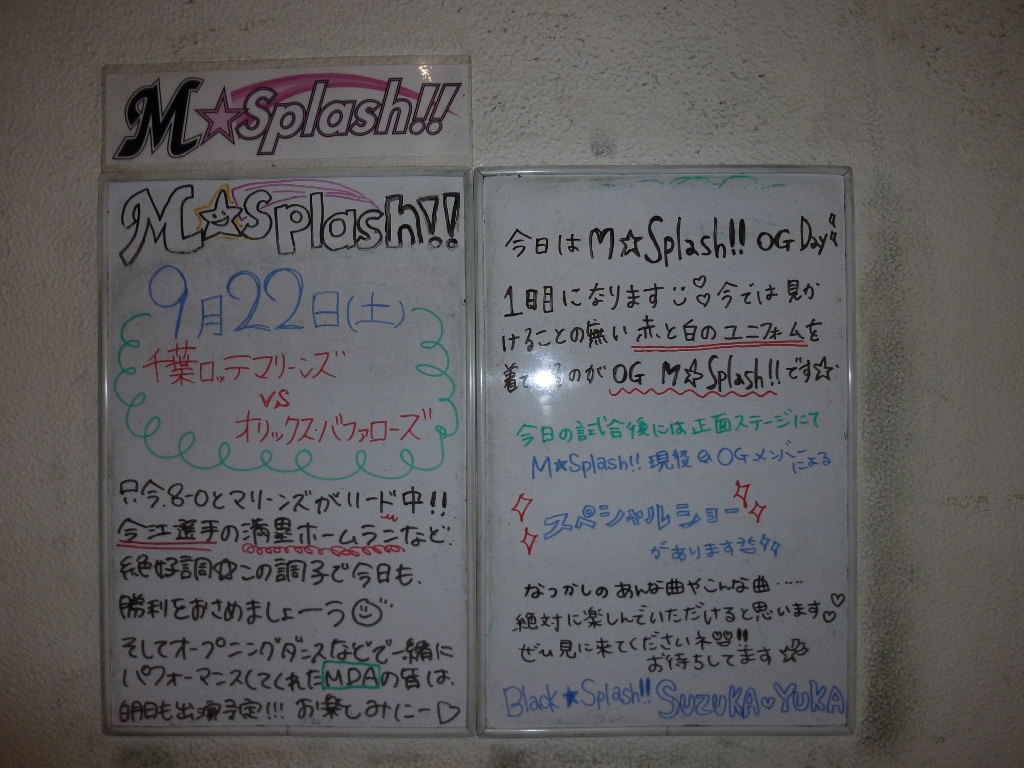 M☆Splash!!
M☆Splash!!
9月22日(土)
千葉ロッテマリーンズ
VS
オリックス・バファローズ
只今8-0とマリーンズがリード中!!
今江選手の満塁ホームランなど
絶好調☆この調子で今日も、
勝利をおさめましょーう
そしてオープニングダンスなどで一緒に
パフォーマンスしてくれたMDAの皆は、
明日も出演予定!!! お楽しみにー♡
今日は M☆Splash!! OG Day
1日目になります♡今では見か
けることの無い赤と白のユニフォームを
着て のがOG M☆Splash!!です☆
今日の試合後には正面ステージにて
M★Splash!! 現役&OGメンバーによる
スペシャルショー
があります
なつかしのあんな曲やこんな曲……
絶対に楽しんでいただけると思います♡
ぜひ見に来てくださいネ!!
お待ちしてます☆
Black★Splash!! SUZUKA♥YUKA